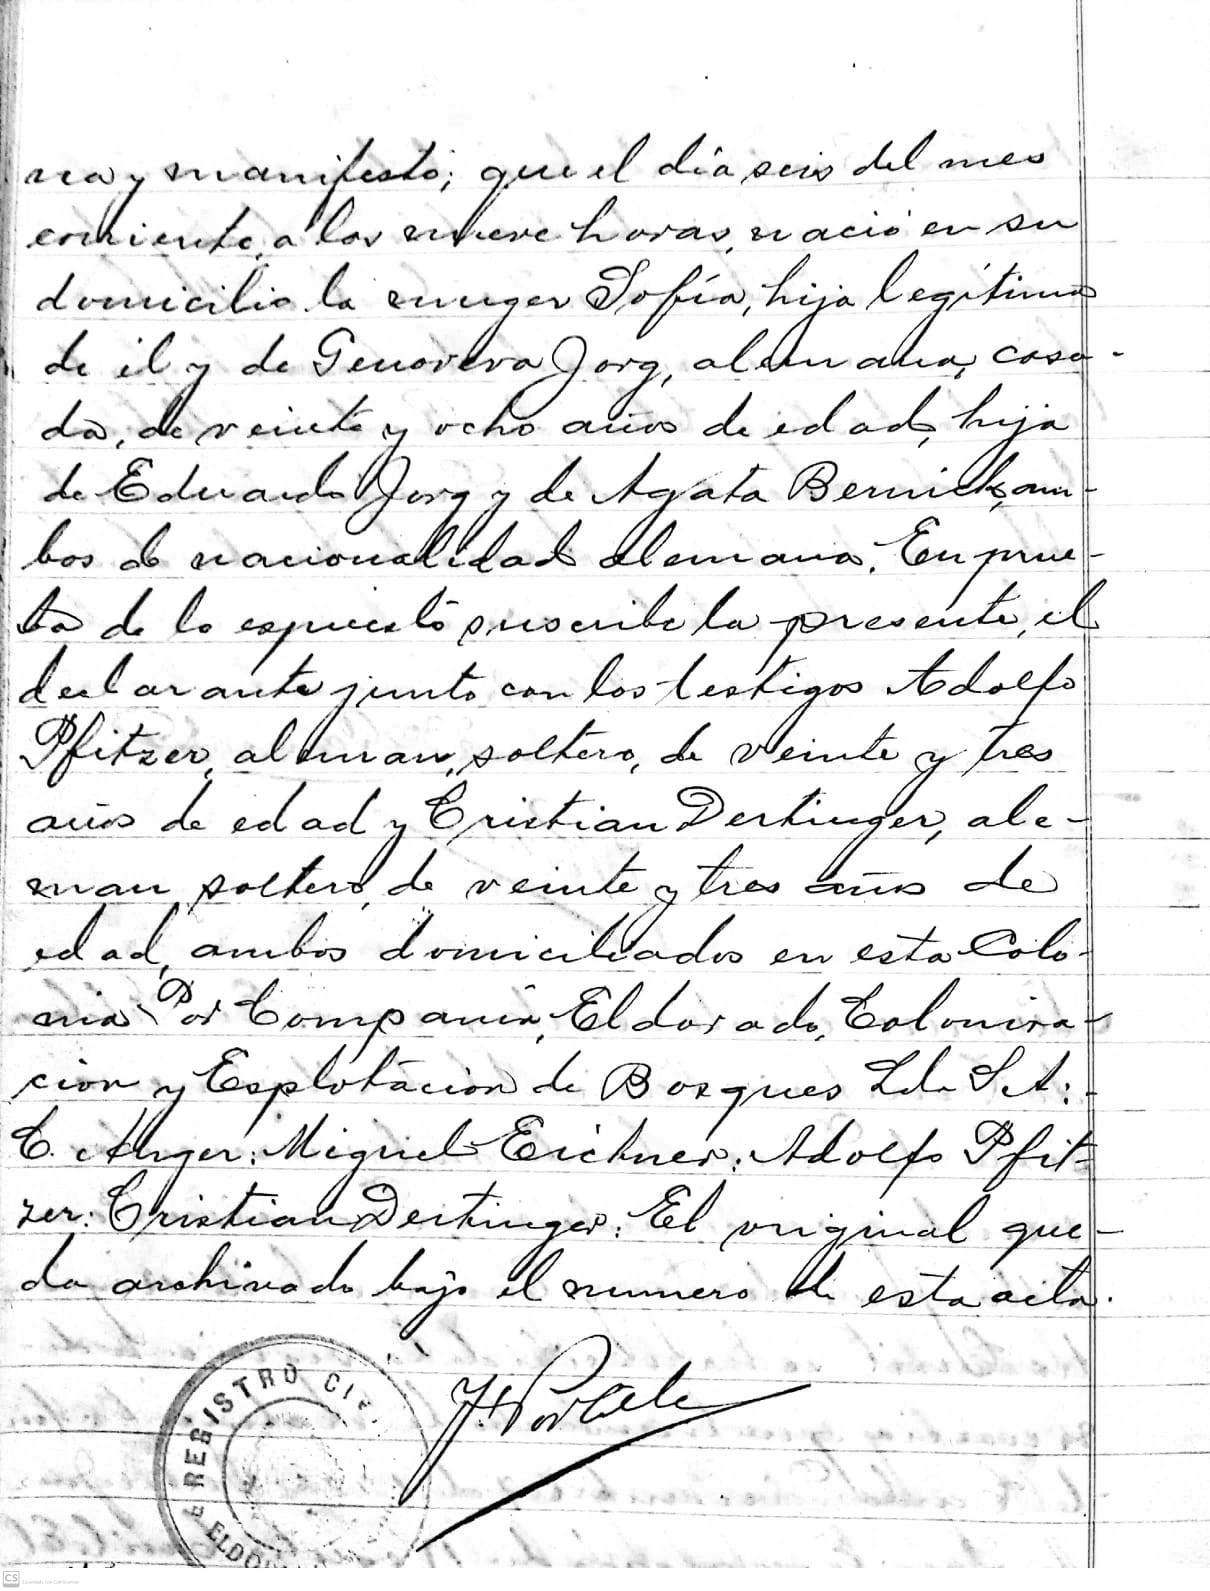 na y manifestó; que el día seis del mes
corriente, a las nueve horas, nació en su
domicilio la muger Sofía, hija legítima
de él y de Genoveva Jorg, alemana, casa-
da, de veinte y ocho años de edad, hija
de Eduardo Jorg y de Agata Bernick, am-
bos de nacionalidad alemana. En prue-
ba de lo espuesto suscribe la presente, el
declarante junto con los testigos Adolfo
Pfitzer, aleman, soltero, de veinte y tres
años de edad y Cristian Dertinger, ale-
man, soltero, de veinte y tres años de
edad, ambos domiciliados en esta Colo-
nia Por Compania, Eldorado, Coloniza-
cion y Esplotacion de Bosques Lda S. A:-
C. Anger: Miguel Eichner: Adolfo Pfit-
zer: Cristian Dertinger: El original que-
da archivado bajo el numero de esta acta.
REGISTRO CIVI
ELDO
CS